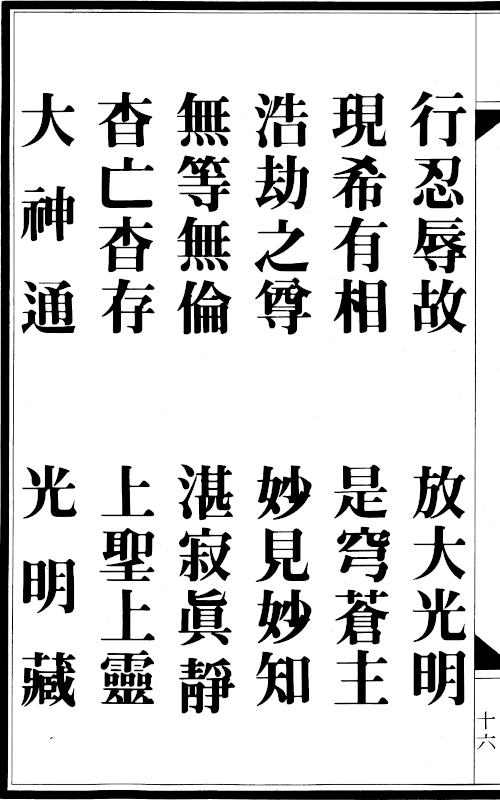 行忍辱故　放大光明
現希有相　是穹蒼主
浩劫之尊　妙見妙知
無等無倫　湛寂眞靜
杳亡杳存　上聖上靈
大神通　光明藏
十六